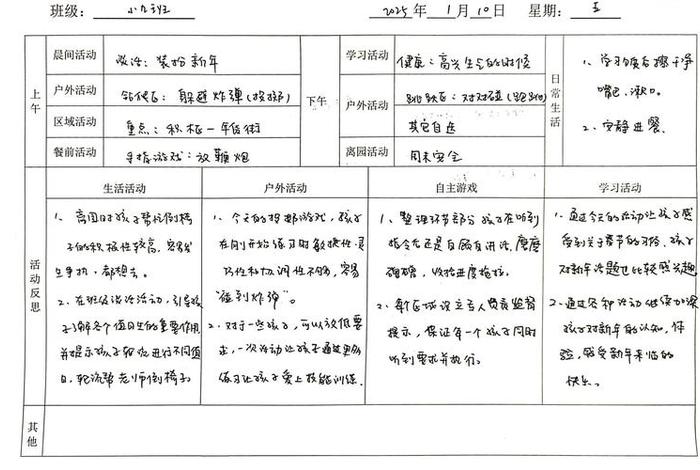 班级： 小九班 2025年 1月 10日 星期： 五
上午
晨间活动 谈话：装扮新年
户外活动 躲避炸弹（投掷）
区域活动 重点：积木区—年货街
餐前活动 手指游戏：放鞭炮
下午
学习活动 健康：高兴生气的时候
户外活动 对对碰（跑跳）
其它自选
离园活动 周末安全
日常生活
1、学习饭后擦干净
嘴巴、漱口。
2、安静进餐。
活动反思
生活活动
1、离园时孩子帮忙倒椅
子的积极性较高，容易发
生争执，都想去。
2、在班级谈话活动，引导孩
子了解各个值日生的重要作用
并提示孩子轮流进行不同值
日，轮流帮老师倒椅子。
户外活动
1、今天的投掷游戏，孩子
在刚开始练习时敏捷性、灵
巧性和协调性不够，容易
“碰到炸弹”。
2、对于一些孩子，可以放低要
求，一次活动让孩子通过更多
练习让孩子爱上技能训练。
自主游戏
1、整理环节部分孩子在听到
指令后还是自顾自讲话，磨磨
蹭蹭，收拾进度拖拉。
2、每个区域设立专人负责监督
提示，保证每一个孩子同时
听到要求并执行。
学习活动
1、通过今天的活动让孩子感
受到关于春节的习俗，孩子
对新年话题也比较感兴趣
2、通过各种活动继续加深
孩子对新年的认知，体
验，感受新年来临的
快乐。
其他